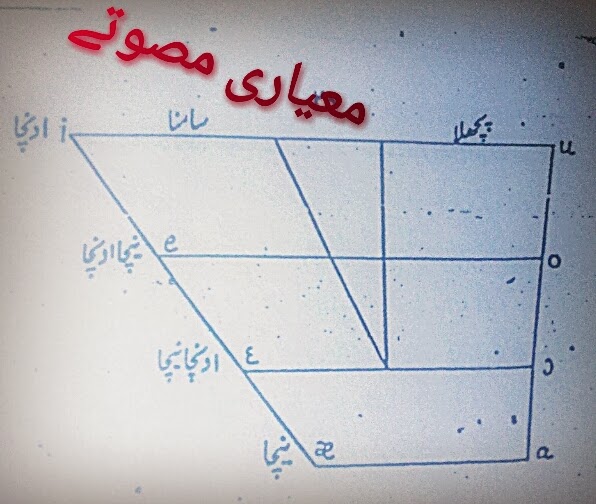 معیاری مصوتے
سامنا پچھلا
اونچا i u
نیچا اونچا e o
اونچا نیچا ɛ ɔ
نیچا æ a